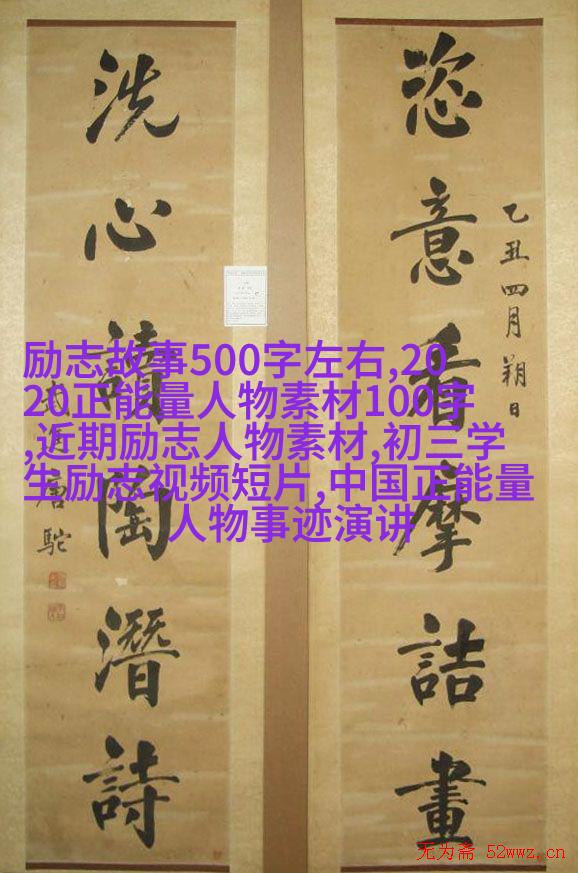 恣意看摩詰畫
乙丑四月朔日
洗心讀陶潛詩
武進唐駝
励志故事500字左右,20
20正能量人物素材100字
,近期励志人物素材,初三学
生励志视频短片,中国正能量
人物事迹演讲
无为斋 52wwz.cn